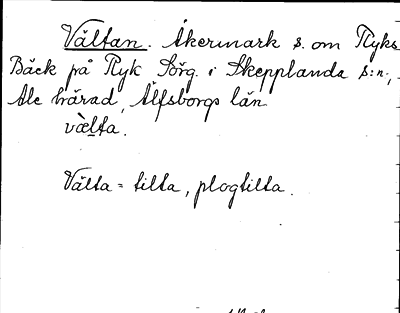 Vältan. Åkermark s. om Ryks
Bäck på Ryk Sörg. i Skepplanda s:n,
Ale härad, Älfsborgs län
væ̀lta.
Välta = tilta, plogtilta.